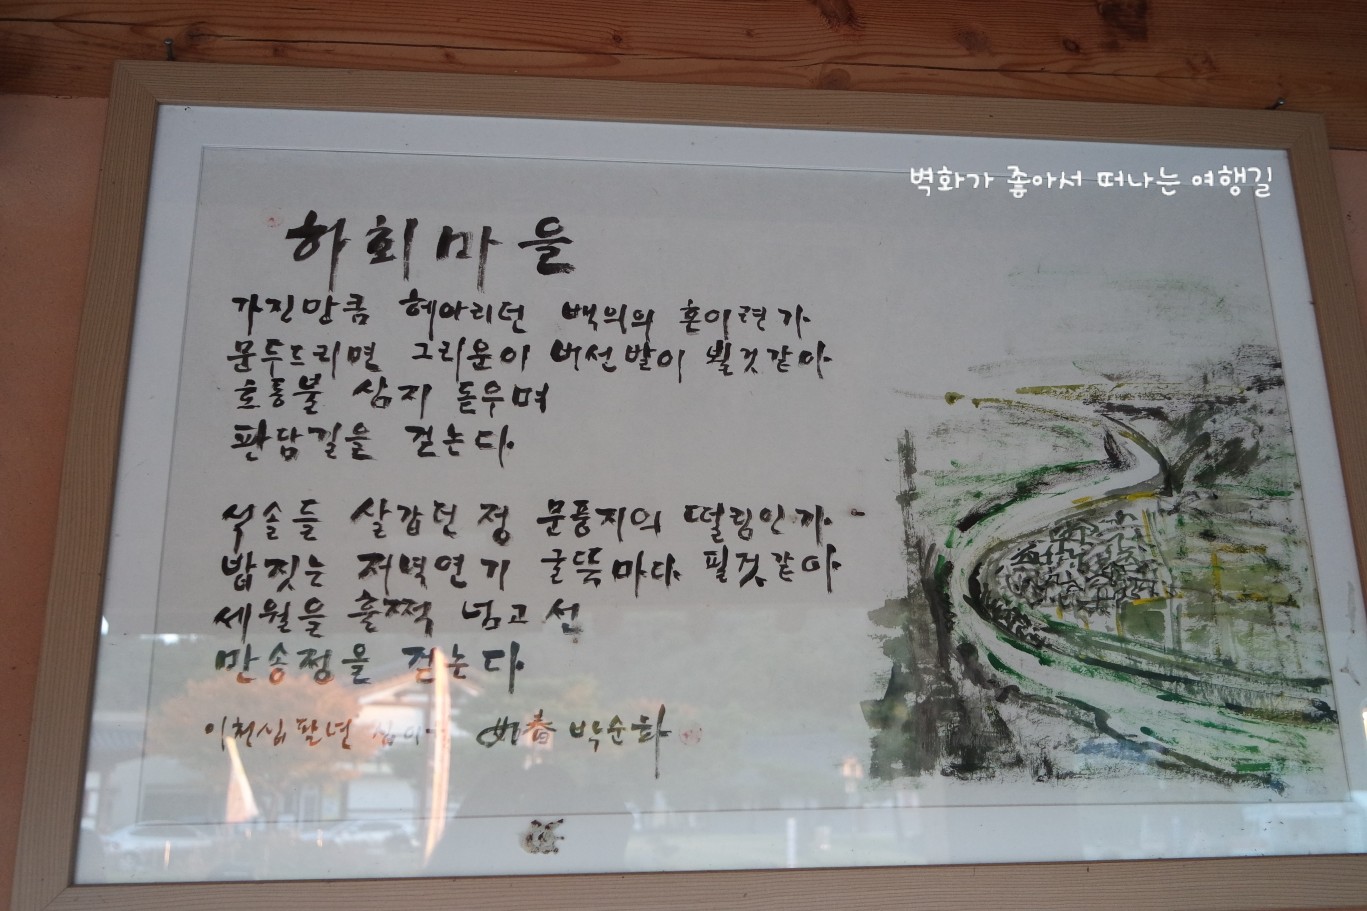 벽화가 좋아서 떠나는 여행길
하회마을
가진만큼 헤아리던 백의의 혼이련가
문두드리면 그리운이 버선발이 뵐것같아
호롱불 심지 돋우며
판담길을 걷는다
식솔들 살갑던 정 문풍지의 떨림인가
밥짓는 저녁연기 굴뚝마다 필것같아
세월을 훌쩍 넘고 선
만송정을 걷는다
이천십팔년 如春 박순화